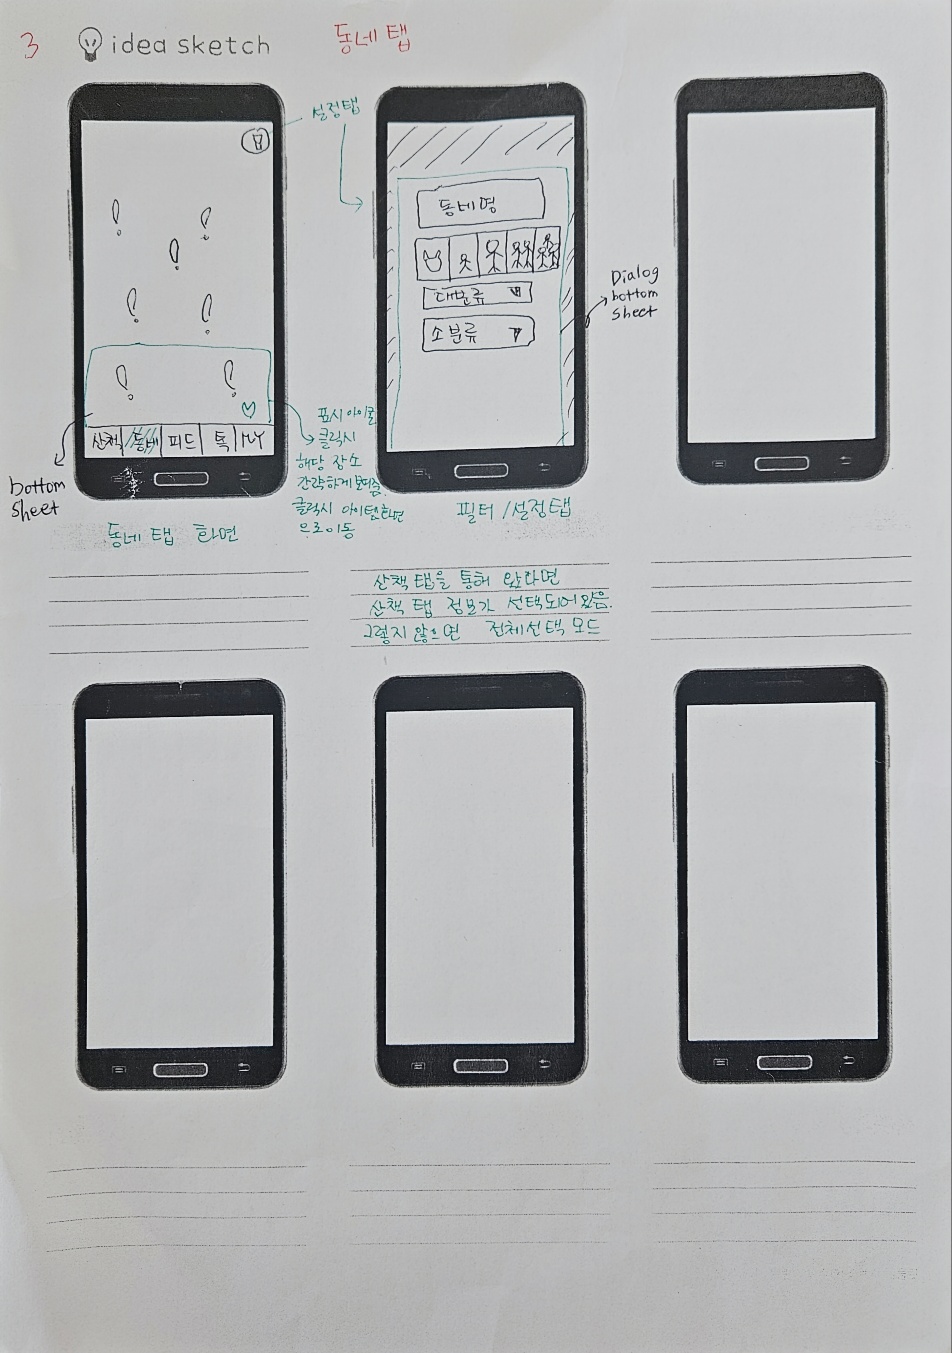 3
idea sketch
동네 탭
설정탭
산책
동네
피드
톡
MY
bottom
sheet
동네 탭 화면
표시 아이콘
클릭시
해당 장소
간략하게 보여줌.
클릭시 아이템화면
으로 이동
동네명
대분류
소분류
Dialog
bottom
sheet
필터/설정탭
산책 탭을 통해 왔다면
산책 탭 정보가 선택되어 있음.
그렇지 않으면 전체선택 모드